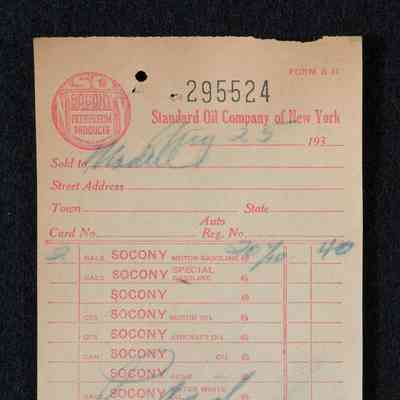 FORM B-11
SOCONY
PETROLEUM
PRODUCTS
295524
Standard Oil Company of New York
Aug 25 193
Sold to Model
Street Address
Town State
Auto
Card No. Reg. No.
2 GALS SOCONY MOTOR GASOLINE @ 20/10 40
GALS SOCONY SPECIAL GASOLINE @
SOCONY @
QTS SOCONY MOTOR OIL @
QTS SOCONY AIRCRAFT OIL @
CAN SOCONY OIL @
SOCONY @